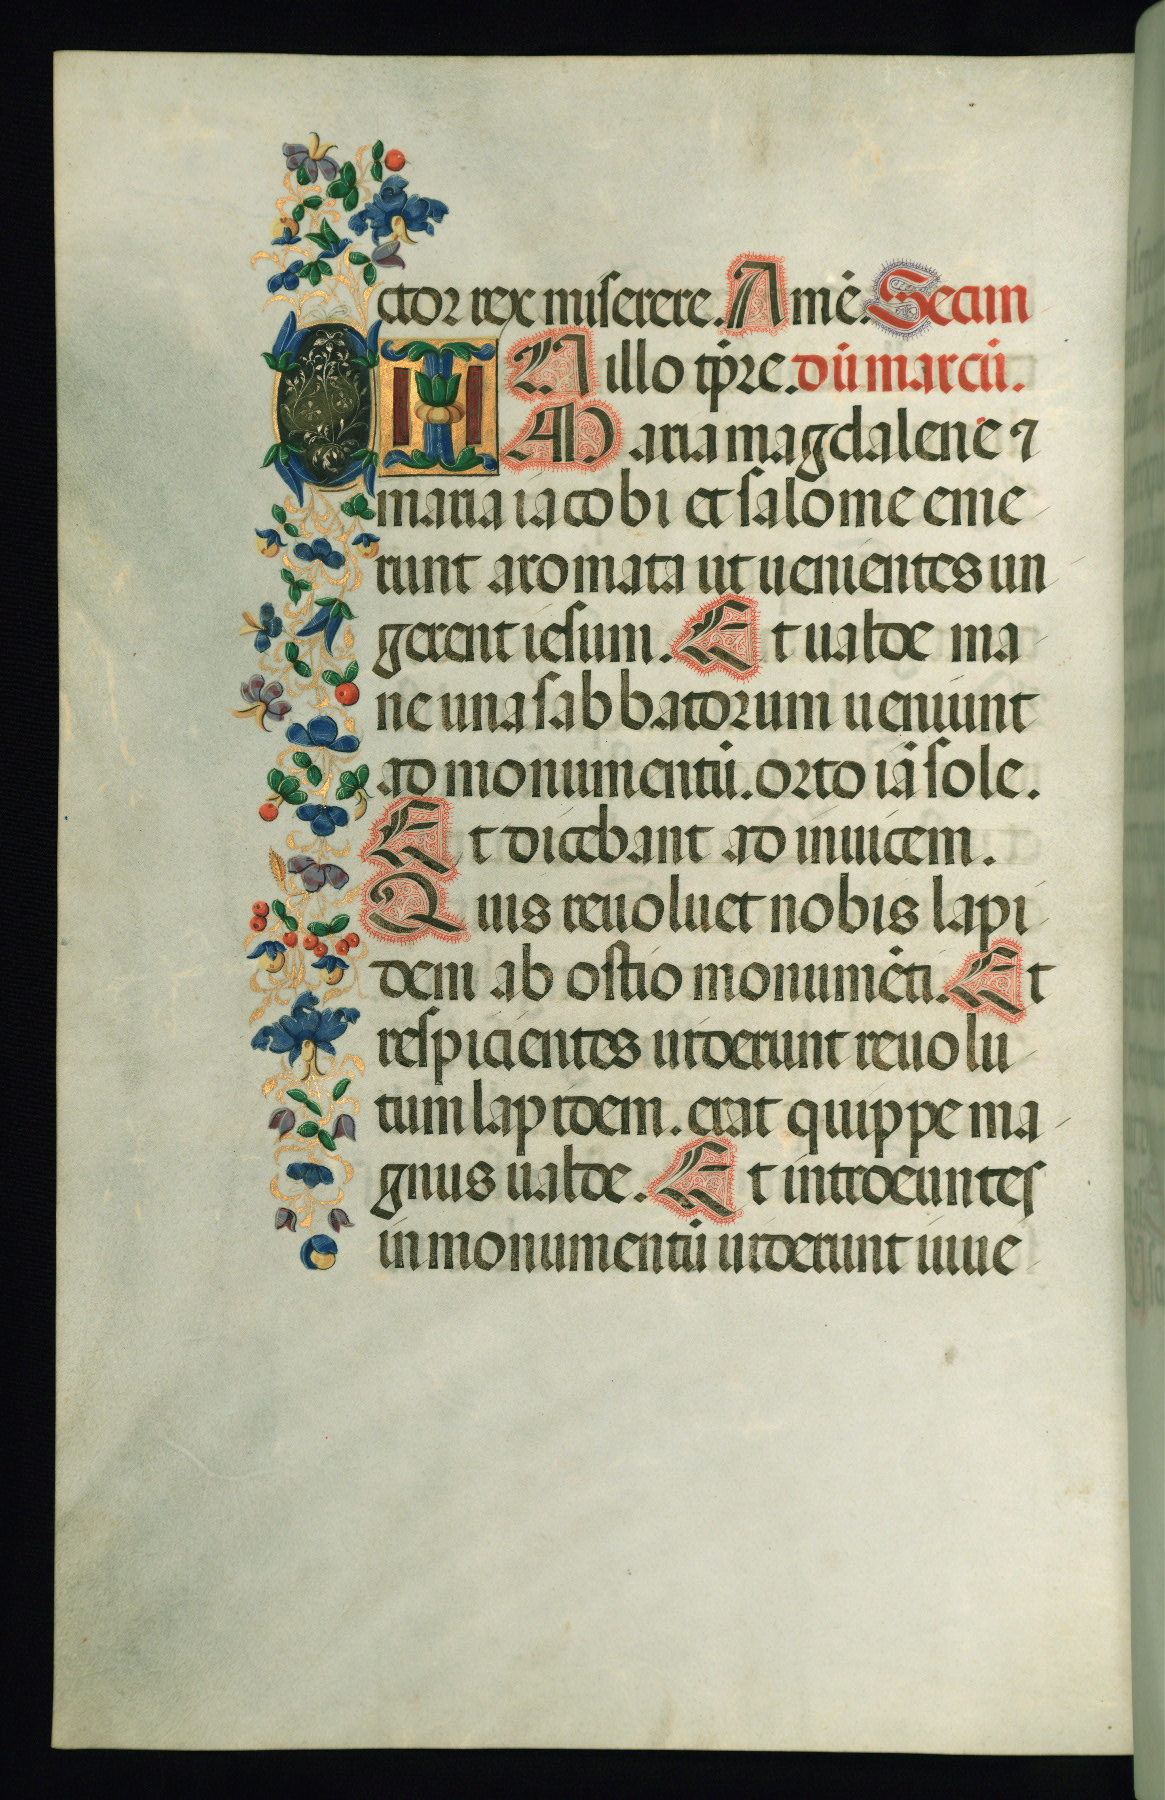 ctor rex miserere. Amē. Secun
IN illo tp̄re. dū marcū.
Maria magdalene ⁊
maria iacobi et salome eme
runt aromata ut uenientes un
gerent iesum. Et ualde ma
ne una sabbatorum ueniunt
ad monumentū. orto iā sole.
Et dicebant ad inuicem.
Quis reuoluet nobis lapi
dem ab ostio monumēti. Et
respicientes uiderunt reuolu
tum lapidem. erat quippe ma
gnus ualde. Et introeuntes
in monumentū uiderunt iuue